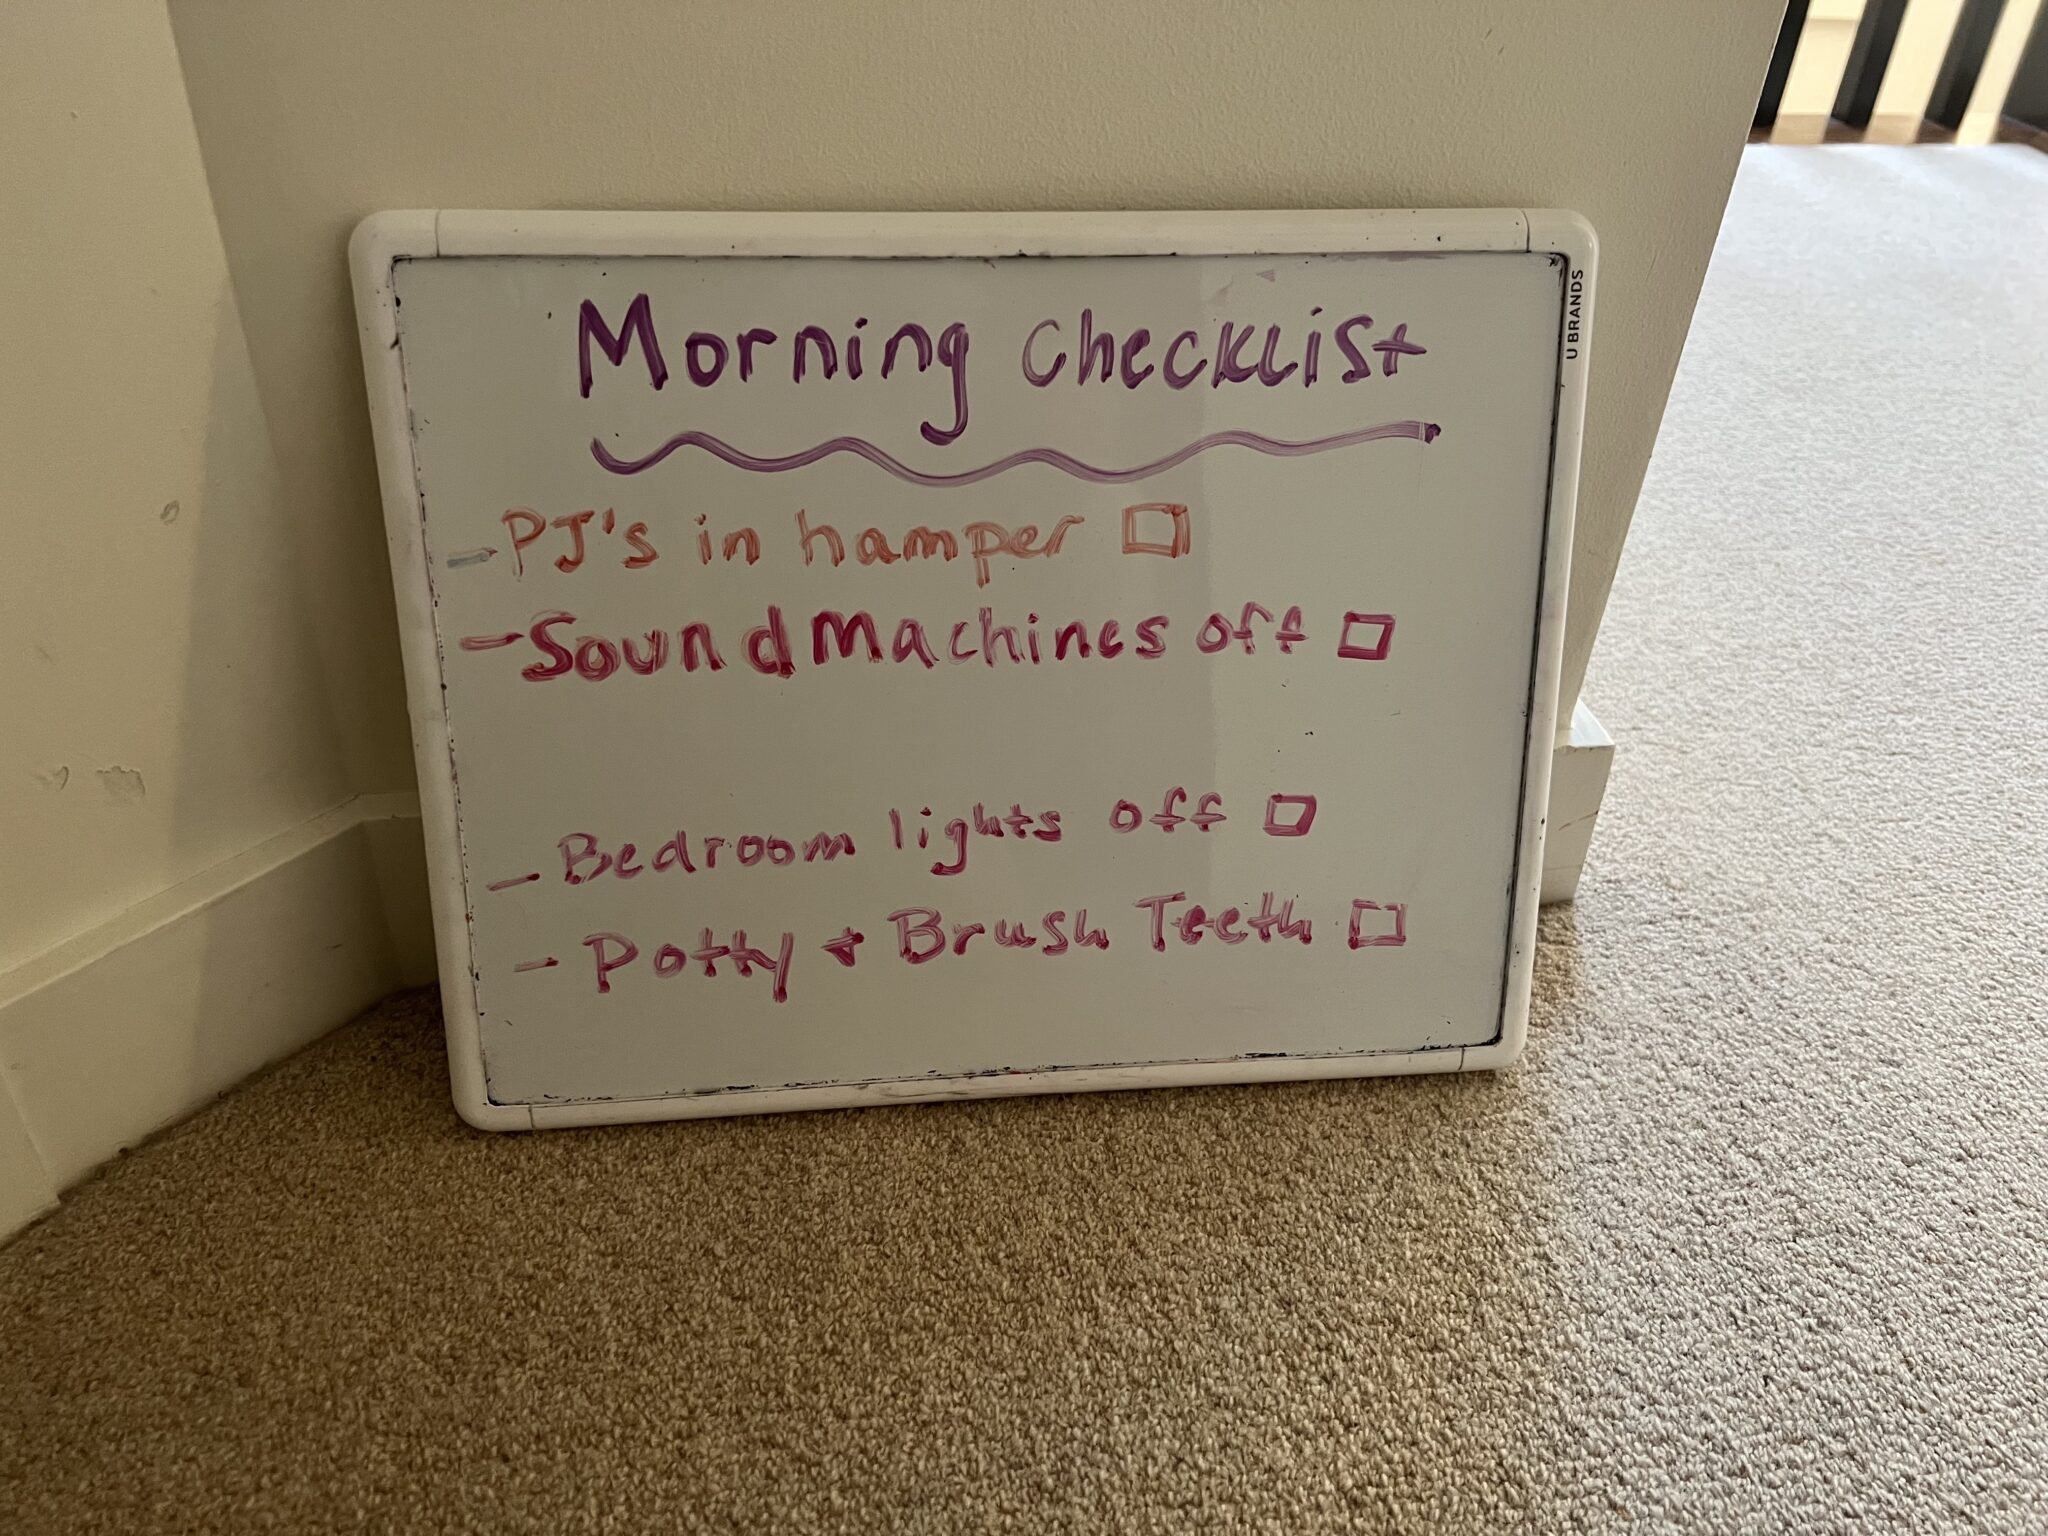 Morning Checklist
- PJ's in hamper □
- Sound Machines off □
- Bedroom lights off □
- Potty + Brush Teeth □
U BRANDS